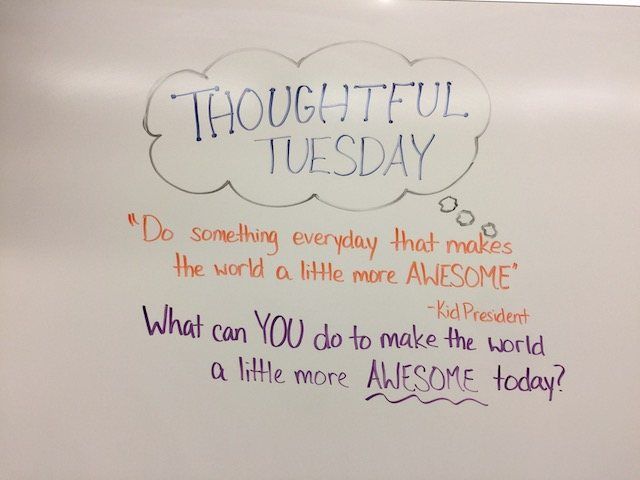 THOUGHTFUL
TUESDAY
"Do something everyday that makes
the world a little more AWESOME"
-Kid President
What can YOU do to make the world
a little more AWESOME today?